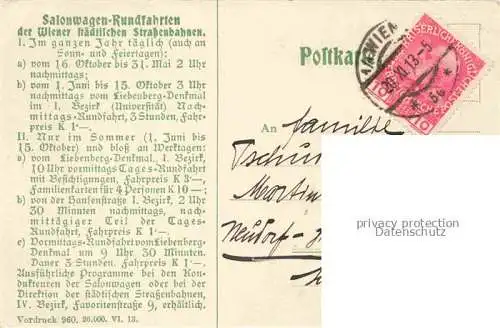 Salonwagen-Rundfahrten
der Wiener städtischen Straßenbahnen.
I. Im ganzen Jahr täglich (auch an
Sonn- und Feiertagen):
a) vom 16. Oktober bis 31. Mai 2 Uhr
nachmittags;
b) vom 1. Juni bis 15. Oktober 3 Uhr
nachmittags vom Liebenberg-Denkmal
im I. Bezirk (Universität) Nach-
mittags-Rundfahrt, 3 Stunden, Fahr-
preis K 1·—.
II. Nur im Sommer (1. Juni bis
15. Oktober) und bloß an Werktagen:
a) vom Liebenberg-Denkmal, I. Bezirk,
10 Uhr vormittags Tages-Rundfahrt
mit Besichtigungen, Fahrpreis K 3·—,
Familienkarten für 4 Personen K 10·—;
b) von der Hansenstraße I. Bezirk, 2 Uhr
30 Minuten nachmittags, nach-
mittägiger Teil der Tages-
Rundfahrt, Fahrpreis K 1·—.
c) Vormittags-Rundfahrt vom Liebenberg-
Denkmal um 9 Uhr 30 Minuten.
Dauer 3 Stunden. Fahrpreis K 1·—.
Ausführliche Programme bei den Kon-
dukteuren der Salonwagen oder bei der
Direktion der städtischen Straßenbahnen,
IV. Bezirk, Favoritenstraße 9, erhältlich.
Vordruck 960. 26.000. VI. 13.
Postka
WIEN
XI.13-5
10
10
An Familie
Martin
Neudorf
privacy protection
Datenschutz